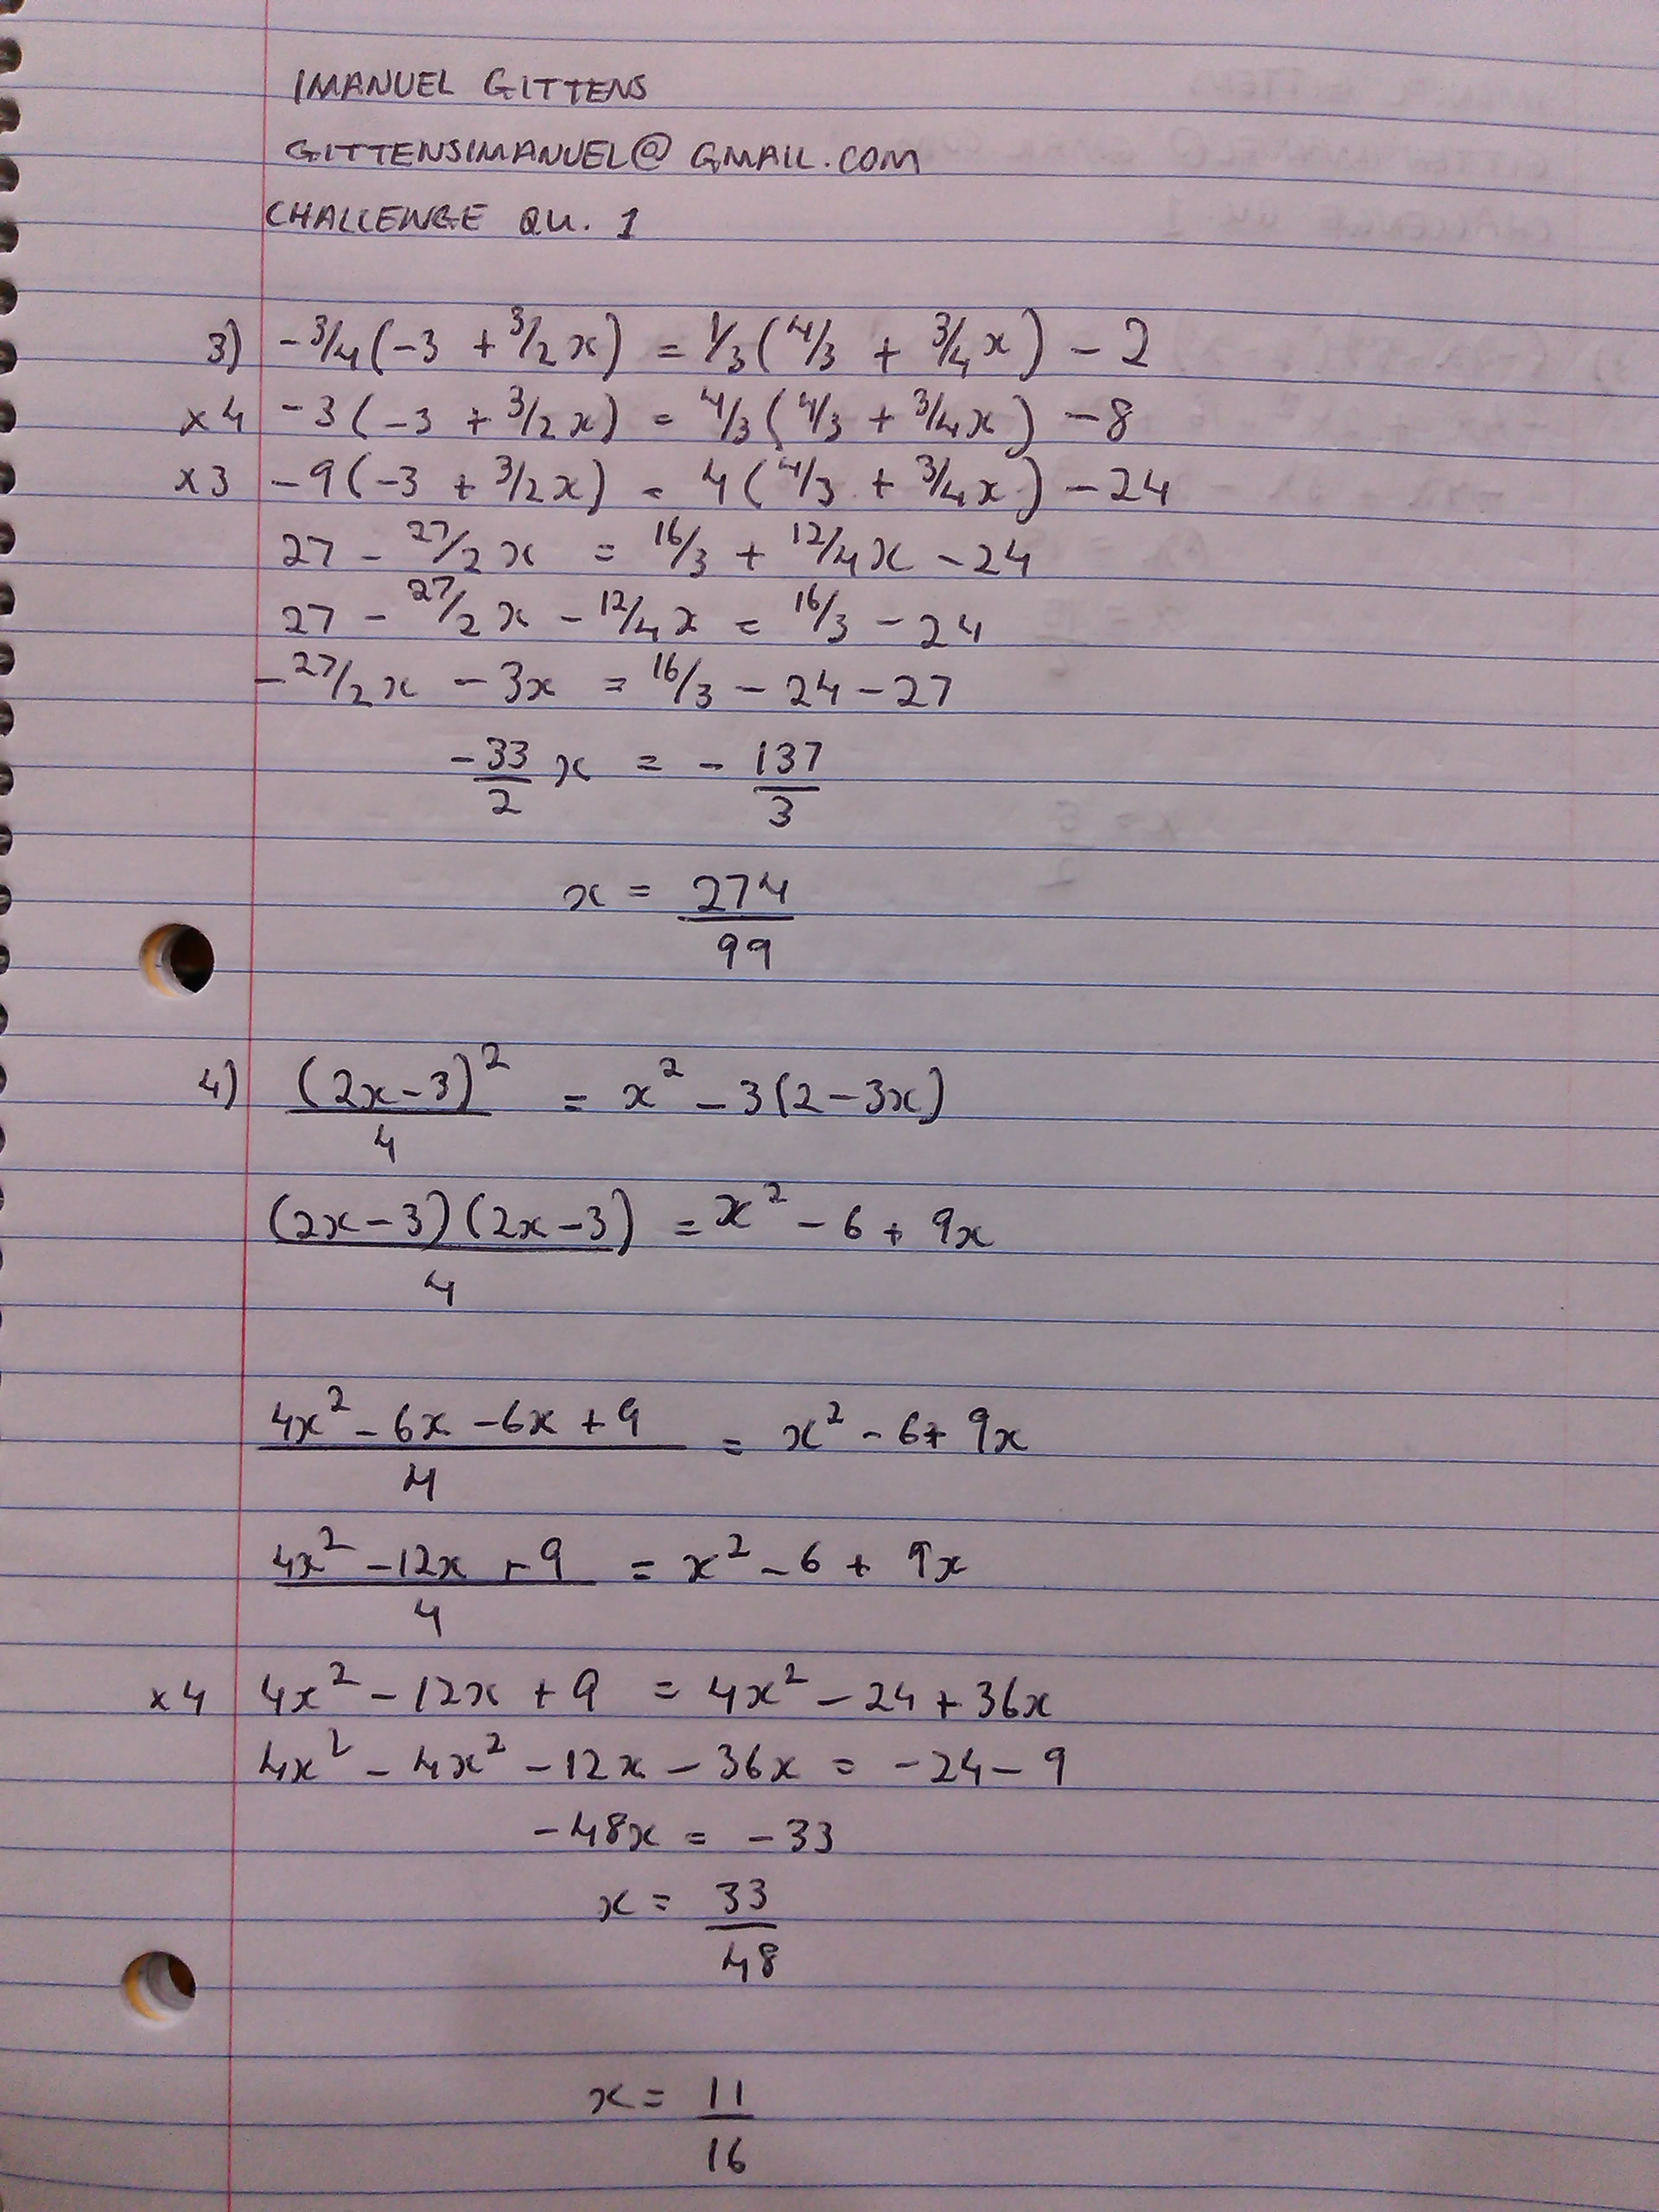 IMANUEL GITTENS
GITTENSIMANUEL@GMAIL.COM
CHALLENGE QU. 1
3) -3/4(-3 + 3/2x) = 1/3(4/3 + 3/4x) - 2
x4 -3(-3 + 3/2x) = 4/3(4/3 + 3/4x) - 8
x3 -9(-3 + 3/2x) = 4(4/3 + 3/4x) - 24
27 - 27/2x = 16/3 + 12/4x - 24
27 - 27/2x - 12/4x = 16/3 - 24
-27/2x - 3x = 16/3 - 24 - 27
-33/2 x = - 137/3
x = 274/99
4) (2x-3)²/4 = x² - 3(2-3x)
(2x-3)(2x-3)/4 = x² - 6 + 9x
4x² - 6x - 6x + 9/4 = x² - 6 + 9x
4x² - 12x + 9/4 = x² - 6 + 9x
x4 4x² - 12x + 9 = 4x² - 24 + 36x
4x² - 4x² - 12x - 36x = -24 - 9
-48x = -33
x = 33/48
x = 11/16